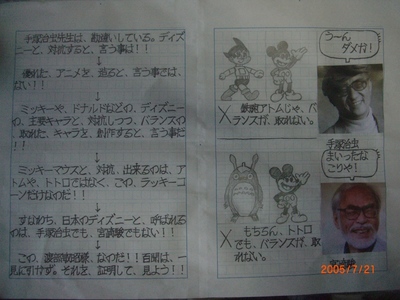 手塚治虫先生は、勘違いしている。ディズ
ニーと、対抗すると、言う事は!!
↓
優れた、アニメを、造ると、言う事では、
ない!!
↓
ミッキーや、ドナルドなどの、ディズニー
の、主要キャラと、対抗しつつ、バランスの
取れた、キャラを、創作すると、言う事だ
!!
↓
ミッキーマウスと、対抗、出来るのは、ア
トムや、トトロではなく、この、ラッキーコ
ーンだけなのだ!!
↓
すなわち、日本のディズニーと、呼ばれる
のは、手塚治虫でも、宮崎駿でもない!!
↓
この、渡部
様、なのだ!!百聞は、一
見に引けず。それを、証明して、見よう!!
うーん
ダメか!
×
鉄腕アトムじゃ、バ
ランスが、取れない。
手塚治虫
まいったな
こりゃ!
×
もちろん、トトロ
でも、バランスが、取
れない。
2005/7/21